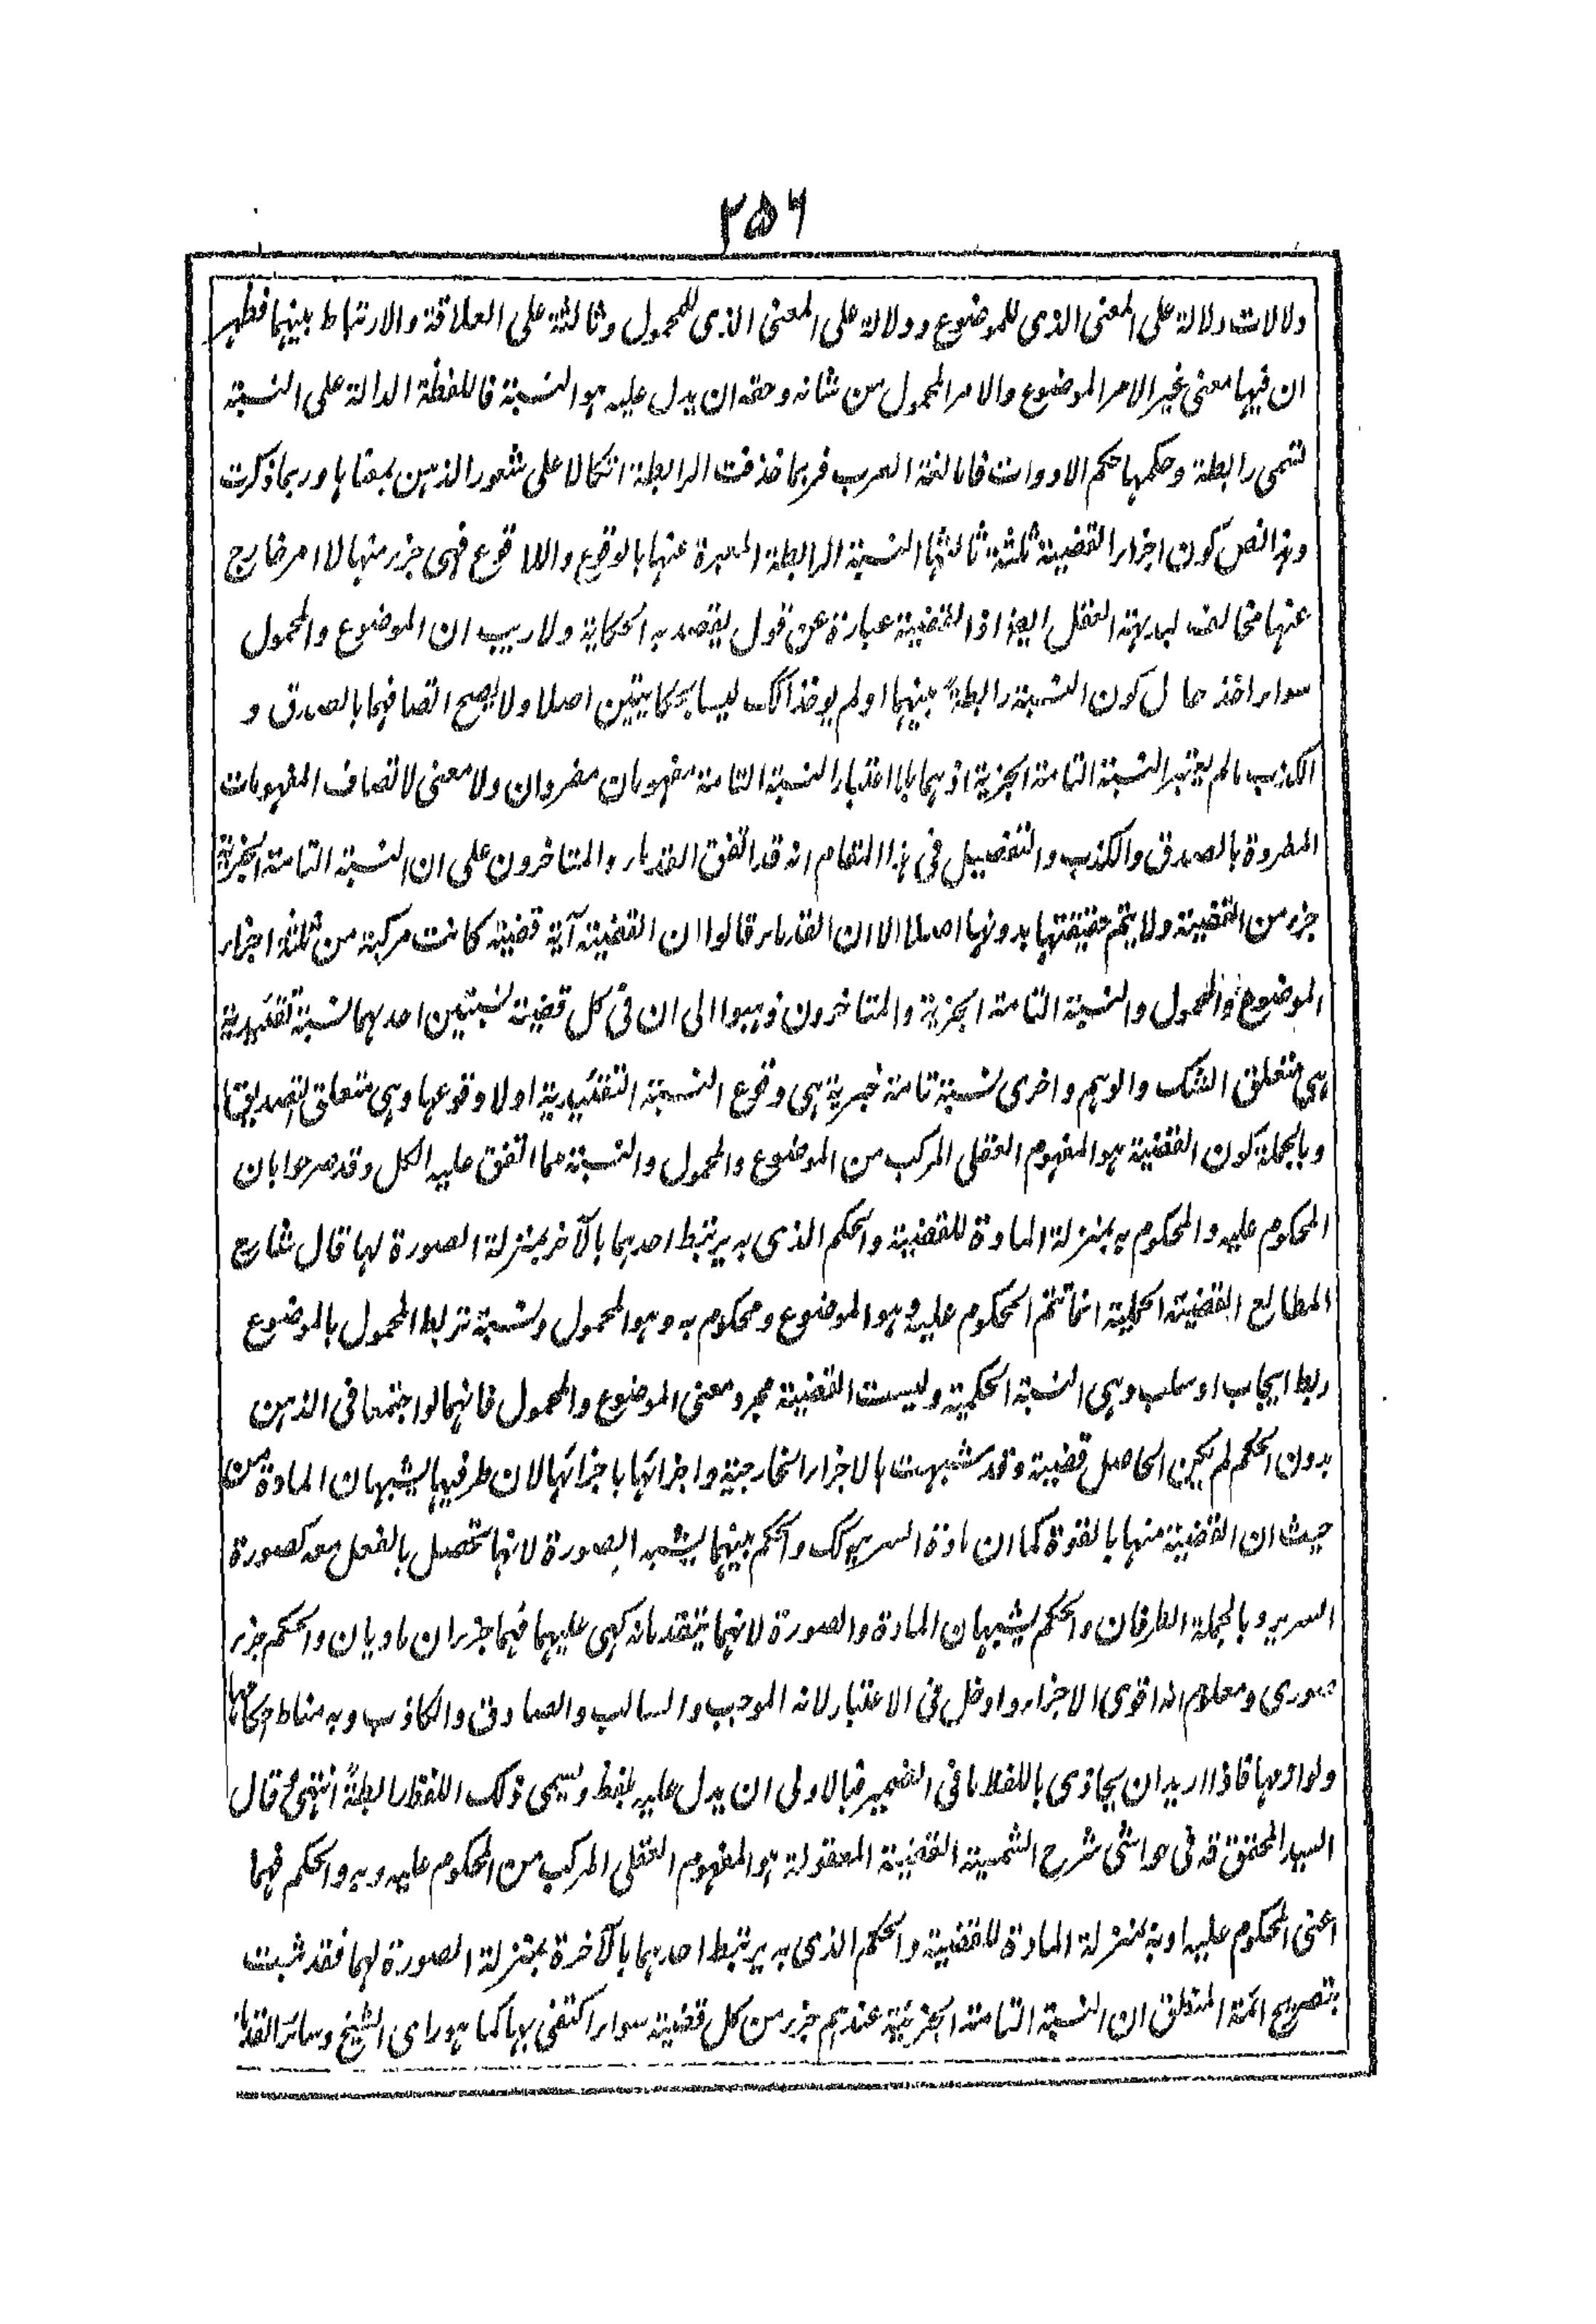 ۲۵۶
دلالات دلالة على المعنى الذى للموضوع ودلالة على المعنى الذى للمحمول وثالثة على العلاقة والارتباط بينهما فظهر
ان فيها معنى غير الامر الموضوع والامر المحمول من شانه وحقه ان يدل عليه هو النسبة فاللفظة الدالة على النسبة
تسمى رابطة وحكمها حكم الادوات فاما لغة العرب فربما حذفت الرابطة اتكالا على شعور الذهن بمعناها وربما ذكرت
وهذا نص كون اجزاء القضية ثلثة ثالثها النسبة الرابطة المعبرة عنها بالوقوع واللا قوع فهى جزء منها لا امر خارج
عنها مخالف لبداهة العقل ايضا اذ القضية عبارة عن قول يقصد به الحكاية ولا ريب ان الموضوع والمحمول
سواء اخذ حال كون النسبة رابطةً بينهما او لم يوخذ كك ليسا بحكايتين اصلا ولا يصح اتصافهما بالصدق و
الكذب مالم يعتبر النسبة التامة الخبرية اذ هما بلا اعتبار النسبة التامة مفهومان مفردان ولا معنى لاتصاف المفهومات
المفردة بالصدق والكذب والتفصيل فى هذا المقام انه قد اتفق القدماء والمتاخرون على ان النسبة التامة الخبرية
جزء من القضية ولا يتم حقيقتها بدونها اصلا الا ان القدماء قالوا ان القضية آية قضية كانت مركبة من ثلثة اجزاء
الموضوع والمحمول والنسبة التامة الخبرية والمتاخرون ذهبوا الى ان فى كل قضية نسبتين احدهما نسبة تقييدية
هى متعلق الشك والوهم واخرى نسبة تامة خبرية هى وقوع النسبة التقييدية اولا وقوعها وهى متعلق التصديق
وبالجملة كون القضية هو المفهوم العقلى المركب من الموضوع والمحمول والنسبة مما اتفق عليه الكل وقد صرحوا بان
المحكوم عليه والمحكوم به بمنزلة المادة للقضية والحكم الذى به يرتبط احدهما بالآخر بمنزلة الصورة لها قال شارح
المطالع القضية الحملية انما تتم بمحكوم عليه وهو الموضوع ومحكوم به وهو المحمول ونسبة تربط المحمول بالموضوع
ربط ايجاب او سلب وهى النسبة الحكمية وليست القضية مجرد معنى الموضوع والمحمول فانهما لو اجتمعا فى الذهن
بدون الحكم لم يكن الحاصل قضية وقد شبهت بالاجزاء الخارجية واجزائها باجزائها لان طرفيها يشبهان المادة من
حيث ان القضية منها بالقوة كما ان مادة السرير كك والحكم بينهما يشبه الصورة لانها تحصل بالفعل معه كصورة
السرير وبالجملة الطرفان والحكم يشبهان المادة والصورة لانهما يتقدمانه كهى عليهما فهما جزءان ماديان والحكم جزء
صورى ومعلوم انه اقوى الاجزاء وادخل فى الاعتبار لانه الموجب والسالب والصادق والكاذب وبه مناط احكامها
ولوازمها فاذا اريد ان يحاذى باللفظ ما فى الضمير فبالاولى ان يدل عليه بلفظ ويسمى ذلك اللفظ رابطةً انتهى قال
السيد المحقق قه فى حواشى شرح الشمسية القضية المعقولة هو المفهوم العقلى المركب من المحكوم عليه وبه والحكم فهما
اعنى المحكوم عليه او به بمنزلة المادة للقضية والحكم الذى به يرتبط احدهما بالآخرة بمنزلة الصورة لهما فقد ثبت
بتصريح ائمة المنطق ان النسبة التامة الخبرية عندهم جزء من كل قضية سواء اكتفى بها كما هو راى الشيخ وسائر القدماء